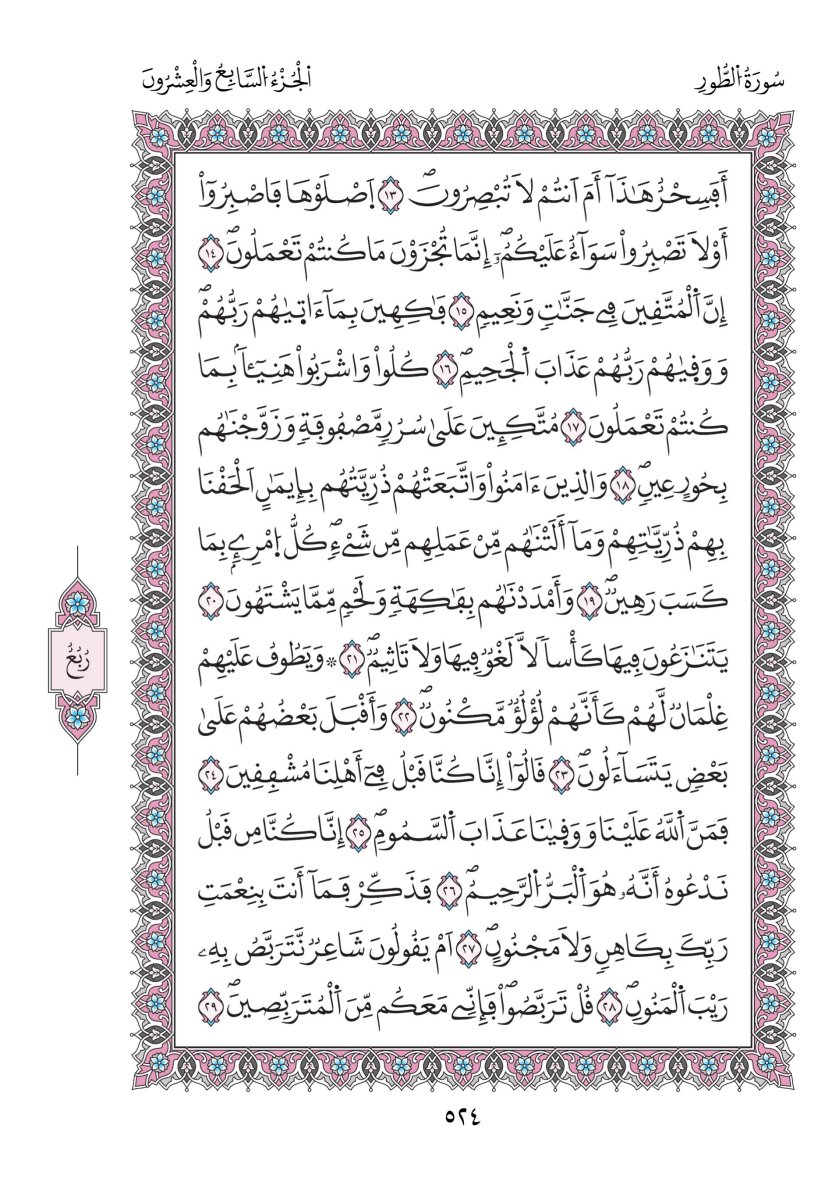 سُورَةُ الطُّورِ
الْجُزْءُ السَّابِعُ وَالْعِشْرُونَ
أَفَسِحْرٌ هَٰذَآ أَمَ اَنتُمْ لَا تُبْصِرُونَ ١٣ اَصْلَوْهَا فَاصْبِرُوٓاْ
أَوْ لَا تَصْبِرُواْ سَوَآءٌ عَلَيْكُمُۥٓ إِنَّمَا تُجْزَوْنَ مَا كُنتُمْ تَعْمَلُونَ ١٤
إِنَّ اَلْمُتَّقِينَ فِے جَنَّٰتٖ وَنَعِيمٖ ١٥ فَٰكِهِينَ بِمَآ ءَاتٜيٰهُمْ رَبُّهُمْ
وَوَقٜيٰهُمْ رَبُّهُمْ عَذَابَ اَلْجَحِيمِ ١٦ كُلُواْ وَاشْرَبُواْ هَنِيٓـٔاَۢ بِمَا
كُنتُمْ تَعْمَلُونَ ١٧ مُتَّكِـِٕينَ عَلَىٰ سُرُرٖ مَّصْفُوفَةٖ وَزَوَّجْنَٰهُم
بِحُورٍ عِينٖ ١٨ وَالذِينَ ءَامَنُواْ وَاتَّبَعَتْهُمْ ذُرِّيَّتُهُم بِإِيمَٰنٍ اَلْحَقْنَا
بِهِمْ ذُرِّيَّٰتِهِمْ وَمَآ أَلَتْنَٰهُم مِّنْ عَمَلِهِم مِّن شَےْءٖ كُلُّ اُمْرِےِٕۢ بِمَا
كَسَبَ رَهِينٞ ١٩ وَأَمْدَدْنَٰهُم بِفَٰكِهَةٖ وَلَحْمٖ مِّمَّا يَشْتَهُونَ ٢٠
يَتَنَٰزَعُونَ فِيهَا كَأْساٗ لَّا لَغْوٞ فِيهَا وَلَا تَاثِيمٞ ٢١ ۞ وَيَطُوفُ عَلَيْهِمْ
رُبُعُ
غِلْمَانٞ لَّهُمْ كَأَنَّهُمْ لُؤْلُؤٞ مَّكْنُونٞ ٢٢ وَأَقْبَلَ بَعْضُهُمْ عَلَىٰ
بَعْضٖ يَتَسَآءَلُونَ ٢٣ قَالُوٓاْ إِنَّا كُنَّا قَبْلُ فِےٓ أَهْلِنَا مُشْفِقِينَ ٢٤
فَمَنَّ اَللَّهُ عَلَيْنَا وَوَقٜيٰنَا عَذَابَ اَلسَّمُومِ ٢٥ إِنَّا كُنَّا مِن قَبْلُ
نَدْعُوهُ أَنَّهُۥ هُوَ اَلْبَرُّ اُلرَّحِيمُ ٢٦ فَذَكِّرْ فَمَآ أَنتَ بِنِعْمَتِ
رَبِّكَ بِكَاهِنٖ وَلَا مَجْنُونٍ ٢٧ اَمْ يَقُولُونَ شَاعِرٞ نَّتَرَبَّصُ بِهِۦ
رَيْبَ اَلْمَنُونِ ٢٨ قُلْ تَرَبَّصُواْ فَإِنِّے مَعَكُم مِّنَ اَلْمُتَرَبِّصِينَ ٢٩
٥٢٤